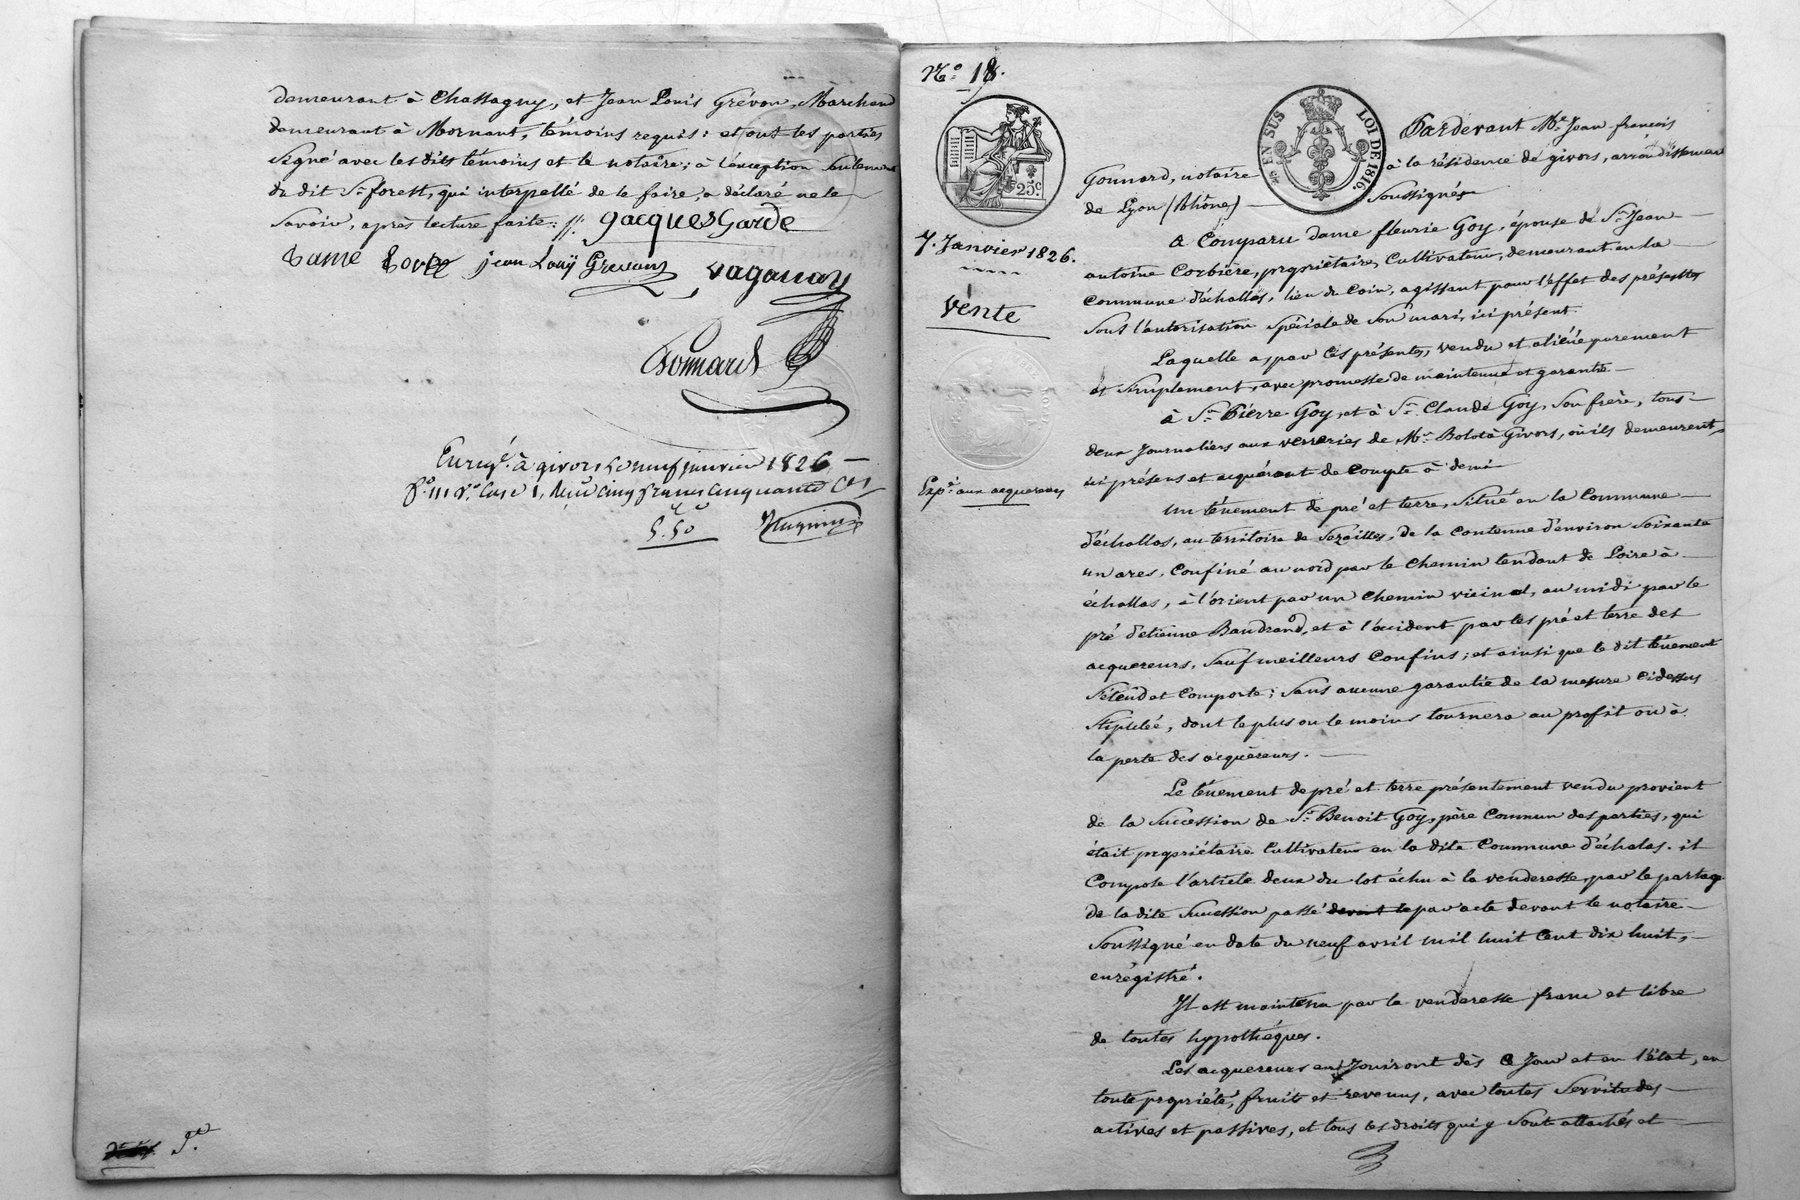 demeurant à Chassagny, et Jean Louis Grévon, Marchand
demeurant à Mornant, témoins requis: et ont les parties
signé avec les dits témoins et le notaire; à l'éxception seulement
du dit Sr. forest, qui interpellé de le faire, a déclaré ne le
savoir, après lecture faite: //: Jacques Garde
jean Louis Grevon
Gonnard
Enregé. à givors le neuf janvier 1826
fo. 111 Vo. Case 1, Reçu cinq francs cinquante ces
5.50
No. 18.
25c.
EN SUS
LOI DE 1816.
7. Janvier 1826.
Vente
Expé. aux acquereurs
Pardevant Me. Jean françois
Gonnard, notaire à la résidence de givors, arrondissement
de Lyon (Rhône) Soussigné
A Comparu dame fleurie Goy, épouse de Sr. Jean
antoine Corbière, propriétaire, Cultivateur, demeurant en la
Commune d'échallas, lieu du Coin, agissant pour l'effet des présentes
sous l'autorisation spéciale de son mari, ici présent.
Laquelle a, par ces présentes, vendu et aliéné purement
et simplement, avec promesse de maintenue et garantie
à Sr. Pierre Goy, et à Sr. Claude Goy, son frère, tous
deux Journaliers aux verreries de Mr. Bolot à Givors, où ils demeurent,
ici présens et acquérant de Compte à demi
un ténement de pré et terre, situé en la Commune
d'échallas, au territoire de Sezailles, de la contenue d'environ soixante
un ares, Confiné au nord par le Chemin tendant de Loire à
échallas, à l'orient par un Chemin vicinal, au midi par le
pré d'étienne Baudrand, et à l'occident par les pré et terre des
acquereurs, sauf meilleurs Confins; et ainsi que le dit ténement
s'étend et Comporte; sans aucune garantie de la mesure cidessus
stipulée, dont le plus ou le moins tournera au profit ou à
la perte des acquéreurs.
Le ténement de pré et terre présentement vendu provient
de la succession de Sr. Benoit Goy, père Commun des parties, qui
était propriétaire Cultivateur en la dite Commune d'échalas. il
Compose l'article deux du lot échu à la venderesse, par le partage
de la dite succession passé devant le par acte devant le notaire
soussigné en date du neuf avril mil huit Cent dix huit,
enrégistré.
Il est maintenu par la venderesse franc et libre
de toutes hypothéques.
Les acquereurs en Jouiront dès Ce Jour et en l'état, en
toute propriété, fruits et revenus, avec toutes servitudes
actives et passives, et tous les droits qui y sont attachés et